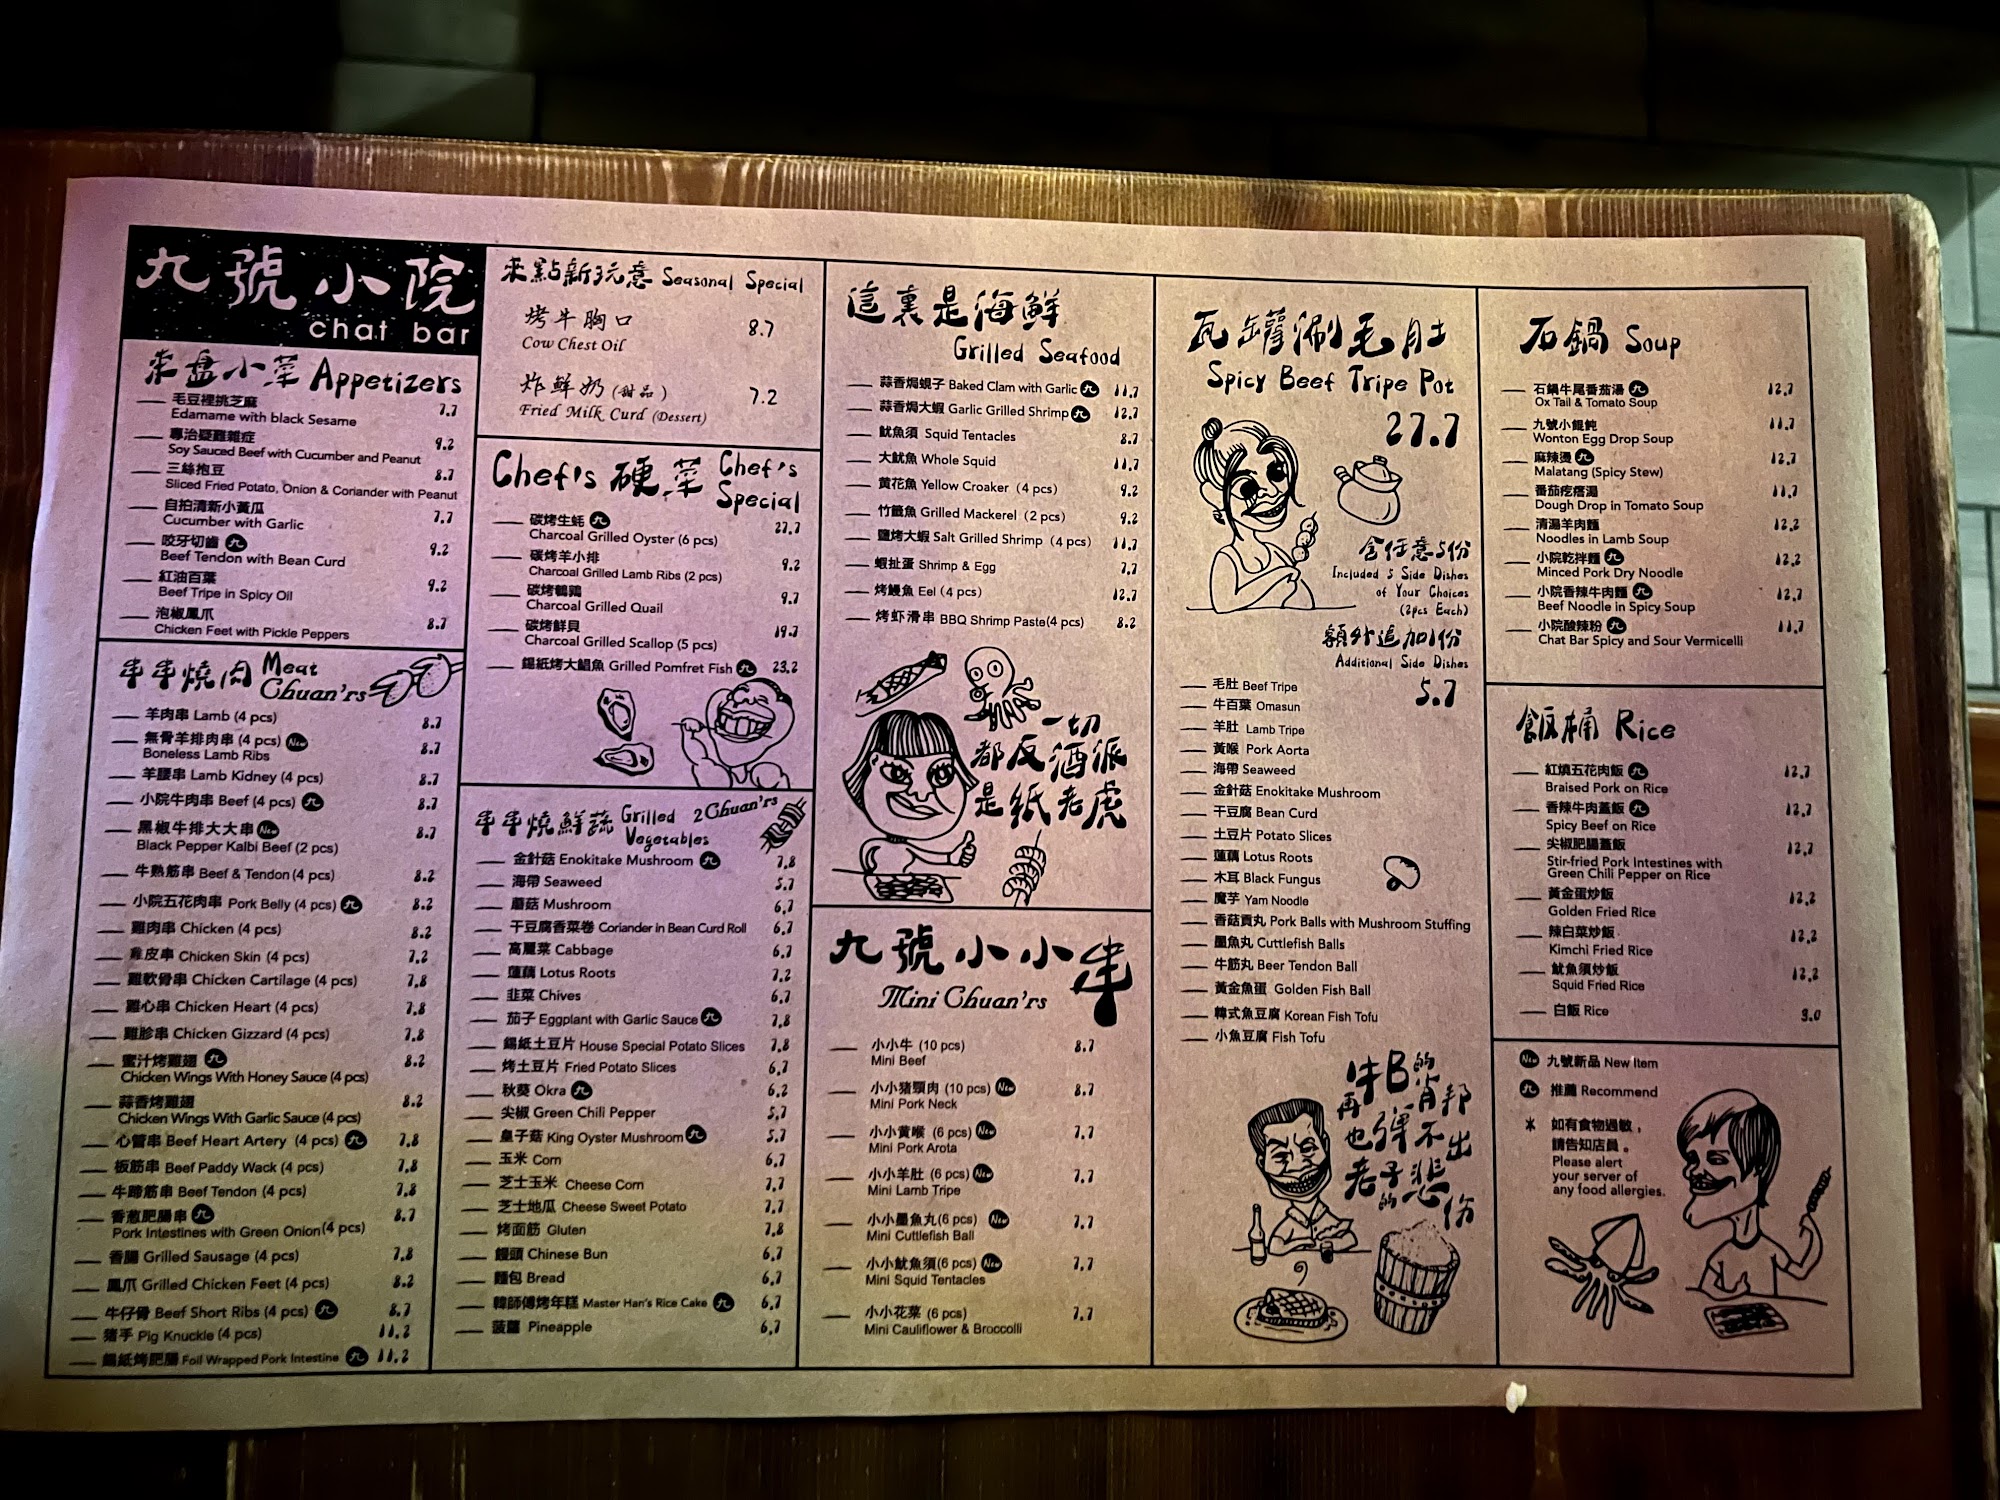 九號小院
chat bar
來盘小菜 Appetizers
毛豆裡挑芝麻
Edamame with black Sesame 7.7
專治疑難雜症
Soy Sauced Beef with Cucumber and Peanut 9.2
三絲抱豆 8.7
Sliced Fried Potato, Onion & Coriander with Peanut
自拍清新小黃瓜
Cucumber with Garlic 7.7
咬牙切齒 九
Beef Tendon with Bean Curd 9.2
紅油百葉
Beef Tripe in Spicy Oil 9.2
泡椒鳳爪
Chicken Feet with Pickle Peppers 8.7
串串燒肉 Meat Chuan'rs
羊肉串 Lamb (4 pcs) 8.7
無骨羊排肉串 (4 pcs) New
Boneless Lamb Ribs 8.7
羊腰串 Lamb Kidney (4 pcs) 8.7
小院牛肉串 Beef (4 pcs) 九 8.7
黑椒牛排大大串 New
Black Pepper Kalbi Beef (2 pcs) 8.7
牛熟筋串 Beef & Tendon (4 pcs) 8.2
小院五花肉串 Pork Belly (4 pcs) 九 8.2
雞肉串 Chicken (4 pcs) 8.2
雞皮串 Chicken Skin (4 pcs) 7.2
雞軟骨串 Chicken Cartilage (4 pcs) 7.8
雞心串 Chicken Heart (4 pcs) 7.8
雞胗串 Chicken Gizzard (4 pcs) 7.8
蜜汁烤雞翅 九 8.2
Chicken Wings With Honey Sauce (4 pcs)
蒜香烤雞翅 8.2
Chicken Wings With Garlic Sauce (4 pcs)
心管串 Beef Heart Artery (4 pcs) 九 7.8
板筋串 Beef Paddy Wack (4 pcs) 7.8
牛蹄筋串 Beef Tendon (4 pcs) 7.8
香蔥肥腸串 九 8.7
Pork Intestines with Green Onion (4 pcs)
香腸 Grilled Sausage (4 pcs) 7.8
鳳爪 Grilled Chicken Feet (4 pcs) 8.2
牛仔骨 Beef Short Ribs (4 pcs) 九 8.7
猪手 Pig Knuckle (4 pcs) 11.2
錫紙烤肥腸 Foil Wrapped Pork Intestine 九 11.2
來點新玩意 Seasonal Special
烤牛胸口 8.7
Cow Chest Oil
炸鮮奶 (甜品) 7.2
Fried Milk Curd (Dessert)
Chef's 硬菜 Chef's Special
碳烤生蚝 九 27.7
Charcoal Grilled Oyster (6 pcs)
碳烤羊小排 9.2
Charcoal Grilled Lamb Ribs (2 pcs)
碳烤鵪鶉 9.7
Charcoal Grilled Quail
碳烤鮮貝 19.7
Charcoal Grilled Scallop (5 pcs)
錫紙烤大鯧魚 Grilled Pomfret Fish 九 23.2
串串燒鮮蔬 Grilled Vegetables 2 Chuan'rs
金針菇 Enokitake Mushroom 九 7.8
海帶 Seaweed 5.7
蘑菇 Mushroom 6.7
干豆腐香菜卷 Coriander in Bean Curd Roll 6.7
高麗菜 Cabbage 6.7
蓮藕 Lotus Roots 7.2
韭菜 Chives 6.7
茄子 Eggplant with Garlic Sauce 九 7.8
錫紙土豆片 House Special Potato Slices 7.8
烤土豆片 Fried Potato Slices 6.7
秋葵 Okra 九 6.2
尖椒 Green Chili Pepper 5.7
皇子菇 King Oyster Mushroom 九 5.7
玉米 Corn 6.7
芝士玉米 Cheese Corn 7.7
芝士地瓜 Cheese Sweet Potato 7.7
烤面筋 Gluten 7.8
饅頭 Chinese Bun 6.7
麵包 Bread 6.7
韓師傅烤年糕 Master Han's Rice Cake 九 6.7
菠蘿 Pineapple 6.7
這裏是海鮮
Grilled Seafood
蒜香焗蜆子 Baked Clam with Garlic 九 11.7
蒜香焗大蝦 Garlic Grilled Shrimp 九 12.7
魷魚須 Squid Tentacles 8.7
大魷魚 Whole Squid 11.7
黄花魚 Yellow Croaker (4 pcs) 9.2
竹籤魚 Grilled Mackerel (2 pcs) 9.2
鹽烤大蝦 Salt Grilled Shrimp (4 pcs) 11.7
蝦扯蛋 Shrimp & Egg 7.7
烤鰻魚 Eel (4 pcs) 12.7
烤虾滑串 BBQ Shrimp Paste(4 pcs) 8.2
一切
都反酒派
是紙老虎
九號小小串
Mini Chuan'rs
小小牛 (10 pcs) 8.7
Mini Beef
小小猪頸肉 (10 pcs) New 8.7
Mini Pork Neck
小小黄喉 (6 pcs) New 7.7
Mini Pork Arota
小小羊肚 (6 pcs) New 7.7
Mini Lamb Tripe
小小墨魚丸(6 pcs) New 7.7
Mini Cuttlefish Ball
小小魷魚須(6 pcs) New 7.7
Mini Squid Tentacles
小小花菜 (6 pcs) 7.7
Mini Cauliflower & Broccolli
瓦罐涮毛肚
Spicy Beef Tripe Pot
27.7
含任意5份
Included 5 Side Dishes
of Your Choices
(2pcs Each)
額外追加1份
Additional Side Dishes
5.7
毛肚 Beef Tripe
牛百葉 Omasun
羊肚 Lamb Tripe
黃喉 Pork Aorta
海帶 Seaweed
金針菇 Enokitake Mushroom
干豆腐 Bean Curd
土豆片 Potato Slices
蓮藕 Lotus Roots
木耳 Black Fungus
魔芋 Yam Noodle
香菇貢丸 Pork Balls with Mushroom Stuffing
墨魚丸 Cuttlefish Balls
牛筋丸 Beer Tendon Ball
黃金魚蛋 Golden Fish Ball
韓式魚豆腐 Korean Fish Tofu
小魚豆腐 Fish Tofu
牛B的肖邦
再也彈不出
老子的悲伤
石鍋 Soup
石鍋牛尾番茄湯 九 12.7
Ox Tail & Tomato Soup
九號小餛飩 11.7
Wonton Egg Drop Soup
麻辣燙 九 12.7
Malatang (Spicy Stew)
番茄疙瘩湯 11.7
Dough Drop in Tomato Soup
清湯羊肉麵 12.2
Noodles in Lamb Soup
小院乾拌麵 九 12.2
Minced Pork Dry Noodle
小院香辣牛肉麵 九 12.7
Beef Noodle in Spicy Soup
小院酸辣粉 九 11.7
Chat Bar Spicy and Sour Vermicelli
飯桶 Rice
紅燒五花肉飯 九 12.7
Braised Pork on Rice
香辣牛肉蓋飯 九 12.7
Spicy Beef on Rice
尖椒肥腸蓋飯 12.7
Stir-fried Pork Intestines with
Green Chili Pepper on Rice
黃金蛋炒飯 12.2
Golden Fried Rice
辣白菜炒飯 12.2
Kimchi Fried Rice
魷魚須炒飯 12.2
Squid Fried Rice
白飯 Rice 3.0
New 九號新品 New Item
九 推薦 Recommend
* 如有食物過敏，
請告知店員。
Please alert
your server of
any food allergies.